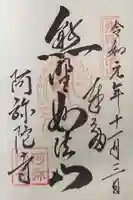 令和元年十一月三日
奉拝
熊野妙法山
阿弥陀寺